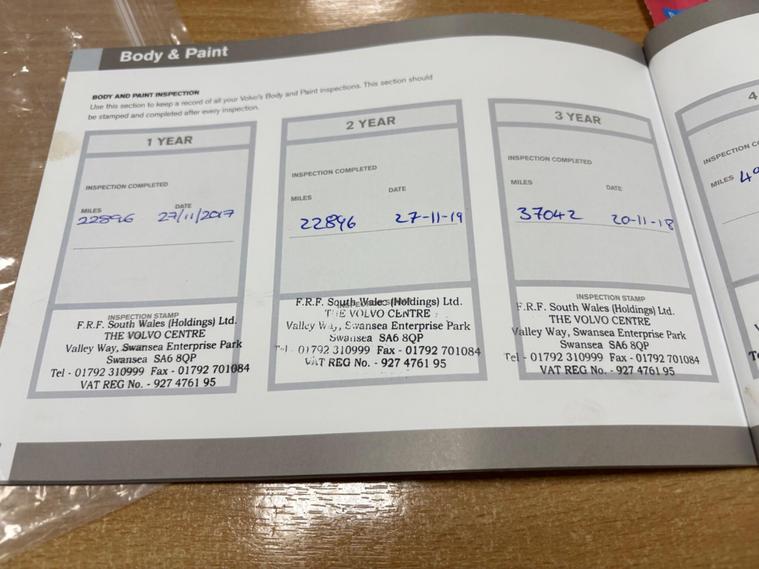 Body & Paint
BODY AND PAINT INSPECTION
Use this section to keep a record of all your Volvo's Body and Paint inspections. This section should
be stamped and completed after every inspection.
1 YEAR
INSPECTION COMPLETED
MILES DATE
22896 27/11/2017
INSPECTION STAMP
F.R.F. South Wales (Holdings) Ltd.
THE VOLVO CENTRE
Valley Way, Swansea Enterprise Park
Swansea SA6 8QP
Tel - 01792 310999 Fax - 01792 701084
VAT REG No. - 927 4761 95
2 YEAR
INSPECTION COMPLETED
MILES DATE
22896 27-11-19
INSPECTION STAMP
F.R.F. South Wales (Holdings) Ltd.
THE VOLVO CENTRE
Valley Way, Swansea Enterprise Park
Swansea SA6 8QP
Tel - 01792 310999 Fax - 01792 701084
VAT REG No. - 927 4761 95
3 YEAR
INSPECTION COMPLETED
MILES DATE
37042 20-11-18
INSPECTION STAMP
F.R.F. South Wales (Holdings) Ltd.
THE VOLVO CENTRE
Valley Way, Swansea Enterprise Park
Swansea SA6 8QP
Tel - 01792 310999 Fax - 01792 701084
VAT REG No. - 927 4761 95
4
INSPECTION
MILES